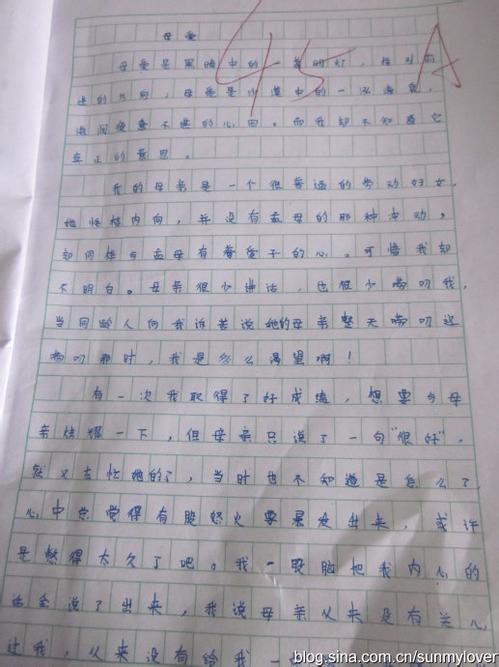 母爱
45 A
母爱是黑暗中的一盏明灯,指引前
进的方向,母爱是沙漠中的一泓清泉,
滋润疲惫不堪的心田。而我却不知道它
真正的意思。
我的母亲是一个很普通的劳动妇女,
她性格内向,并没有孟母的那种主动,
却同样与孟母有着爱子的心。可惜我却
不明白。母亲很少讲话,也很少唠叨我,
当同龄人向我诉苦说她的母亲整天唠叨这
唠叨那时,我是多么渴望啊!
有一次我取得了好成绩,想要与母
亲炫耀一下,但母亲只说了一句“很好”,
然又去忙她的了,当时也不知道是怎么了
心中总觉得有股怒火要暴发出来,或许
是憋得太久了吧。我一股脑把我内心的
话全说了出来,我说母亲从来没有关心
过我,从来没有给我一
blog.sina.com.cn/sunmylover